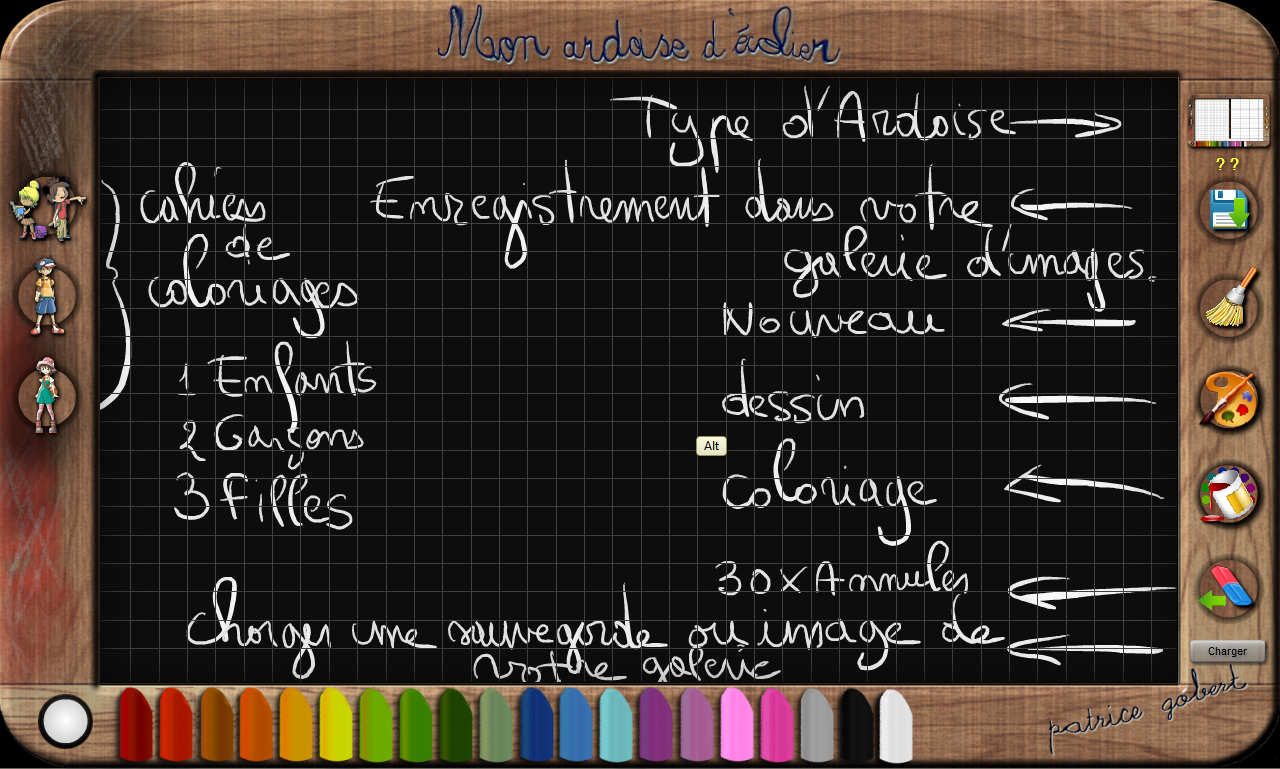 Mon ardoise d'écolier
Type d'Ardoise
? ?
cahiers
de
coloriages
1 Enfants
2 Garçons
3 Filles
Enregistrement dans votre
galerie d'images.
Nouveau
dessin
Alt
coloriage
30x Annuler
Charger une sauvegarde ou image de
votre galerie
Charger
patrice gobert